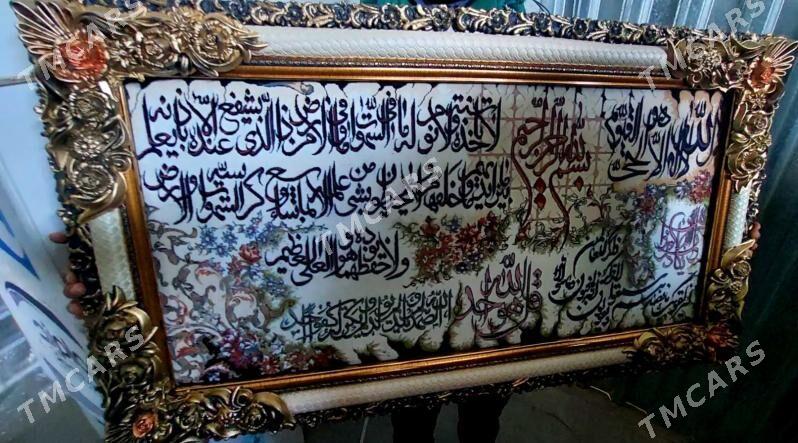 بسم الله الرحمن الرحيم
الله لا إله إلا هو الحي القيوم
لا تأخذه سنة ولا نوم له ما في السموات وما في الأرض من ذا الذي يشفع عنده إلا بإذنه يعلم
ما بين أيديهم وما خلفهم ولا يحيطون بشيء من علمه إلا بما شاء وسع كرسيه السموات والأرض
ولا يؤده حفظهما وهو العلي العظيم
قل هو الله أحد
الله الصمد لم يلد ولم يولد ولم يكن له كفوا أحد
TMCARS
TMCARS
TMCARS
TMCARS
TMCARS
TMCARS
TMCARS
TMCARS
TMCARS